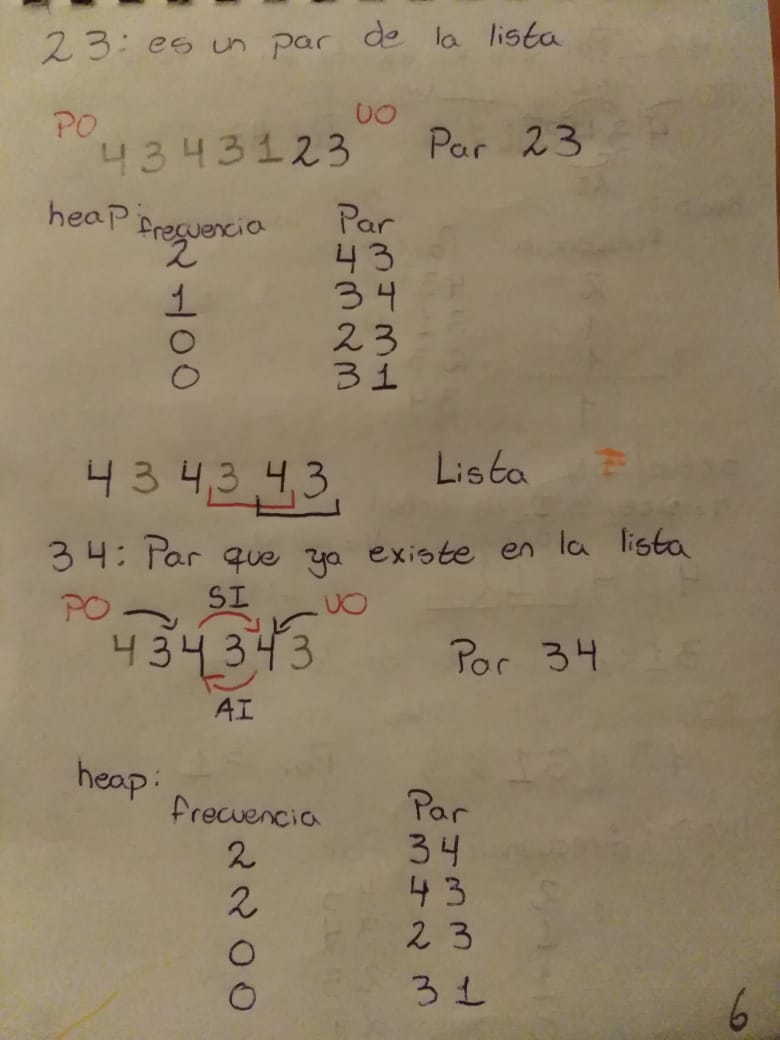 23: es un par de la lista
PO 4 3 4 3 1 2 3 UO Par 23
heap: frecuencia Par
2 43
1 34
0 23
0 31
4 3 4 3 4 3 Lista
34: Par que ya existe en la lista
PO SI UO
4 3 4 3 4 3 Par 34
AI
heap:
frecuencia Par
2 34
2 43
0 23
0 31
6